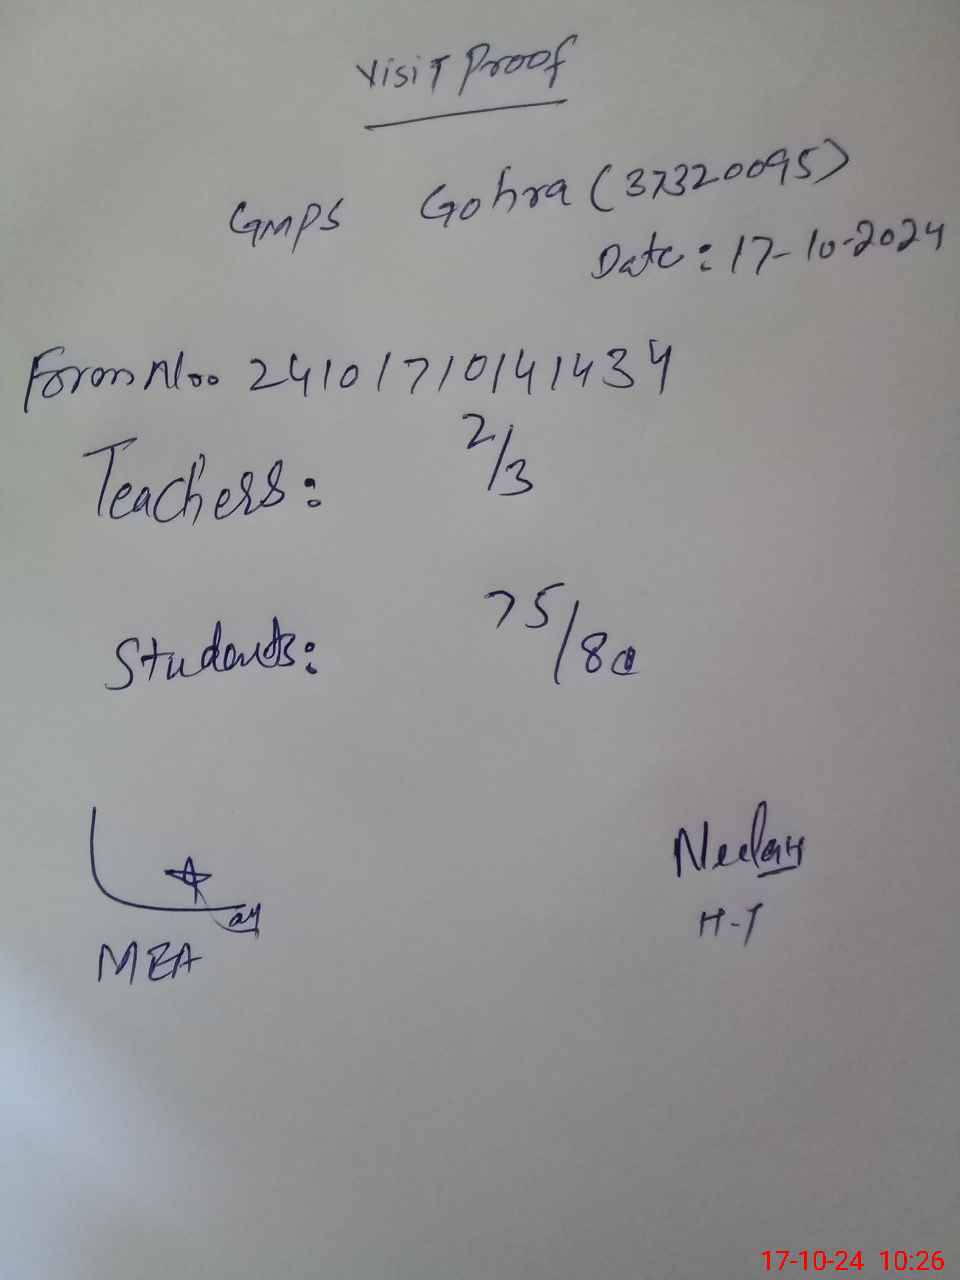 Visit Proof
GMPS Gohra (37320095)
Date: 17-10-2024
Form No. 24101710141434
Teachers: 2/3
Students: 75/80
MEA
H-T
17-10-24 10:26